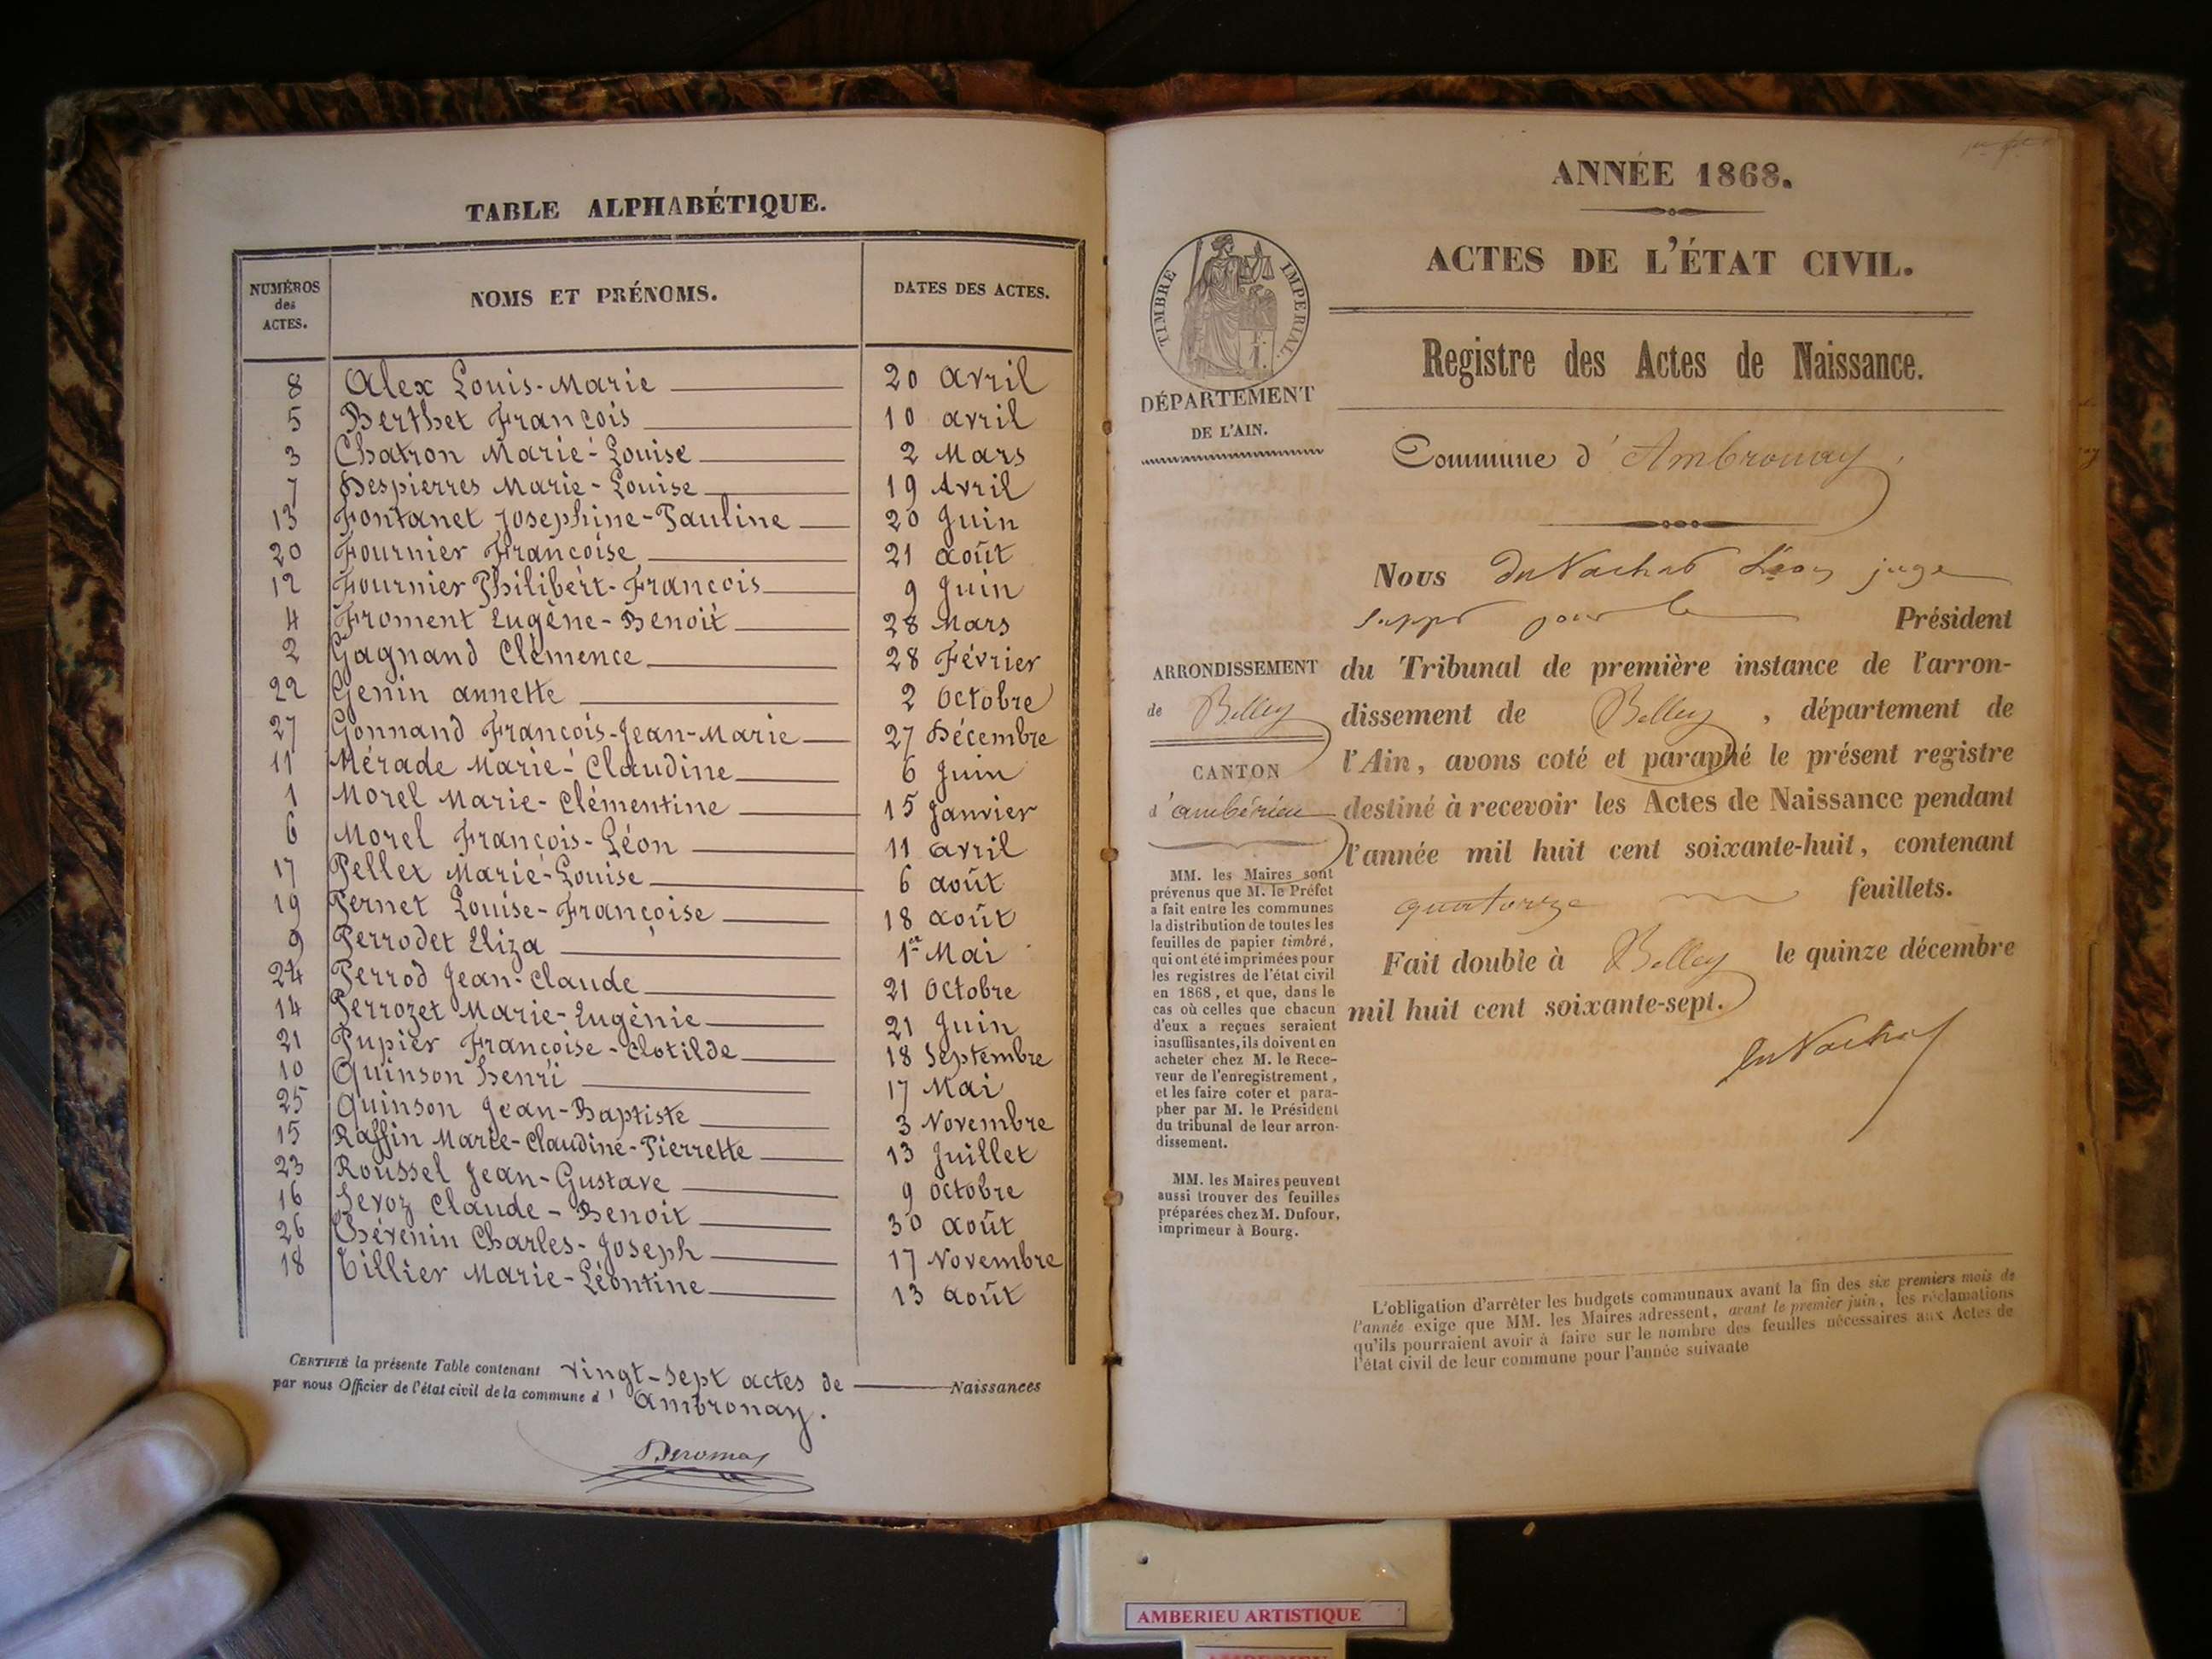 TABLE ALPHABÉTIQUE.
NUMÉROS des ACTES.
NOMS ET PRÉNOMS.
DATES DES ACTES.
8 Alex Louis-Marie 20 avril
5 Berthet François 10 avril
3 Chatron Marie-Louise 2 Mars
7 Despierres Marie-Louise 19 Avril
13 Fontanet Josephine-Pauline 20 Juin
20 Fournier Françoise 21 août
12 Fournier Philibert-François 9 Juin
4 Froment Eugène-Benoit 28 Mars
2 Gagnand Clémence 28 Février
22 Genin annette 2 Octobre
27 Gonnand François-Jean-Marie 27 Décembre
11 Mérade Marie-Claudine 6 Juin
1 Morel Marie-Clémentine 15 Janvier
6 Morel François-Léon 11 avril
17 Pellet Marie-Louise 6 août
19 Pernet Louise-Françoise 18 août
9 Perrodet Eliza 1er Mai
24 Perrod Jean-Claude 21 Octobre
14 Perrozet Marie-Eugénie 21 Juin
21 Pupier Françoise-Clotilde 18 Septembre
10 Quinson henri 17 Mai
25 Quinson Jean-Baptiste 3 Novembre
15 Raffin Marie-Claudine-Pierrette 13 Juillet
23 Roussel Jean-Gustave 9 Octobre
16 Sevoz Claude-Benoit 30 août
26 Thévenin Charles-Joseph 17 Novembre
18 Tillier Marie-Léontine 13 août
CERTIFIÉ la présente Table contenant vingt-sept actes de Naissances
par nous Officier de l'état civil de la commune d' Ambronay.
ANNÉE 1868.
ACTES DE L'ÉTAT CIVIL.
TIMBRE IMPÉRIAL.
DÉPARTEMENT
DE L'AIN.
Registre des Actes de Naissance.
Commune d' Ambronay
Nous Léon juge
supp pour le Président
du Tribunal de première instance de l'arron-
dissement de Belley, département de
l'Ain, avons coté et paraphé le présent registre
destiné à recevoir les Actes de Naissance pendant
l'année mil huit cent soixante-huit, contenant
quatorze feuillets.
Fait double à Belley le quinze décembre
mil huit cent soixante-sept.
ARRONDISSEMENT
de Belley
CANTON
d'ambérieu
MM. les Maires sont
prévenus que M. le Préfet
a fait entre les communes
la distribution de toutes les
feuilles de papier timbré,
qui ont été imprimées pour
les registres de l'état civil
en 1868, et que, dans le
cas où celles que chacun
d'eux a reçues seraient
insuffisantes, ils doivent en
acheter chez M. le Rece-
veur de l'enregistrement,
et les faire coter et para-
pher par M. le Président
du tribunal de leur arron-
dissement.
MM. les Maires peuvent
aussi trouver des feuilles
préparées chez M. Dufour,
imprimeur à Bourg.
L'obligation d'arrêter les budgets communaux avant la fin des six premiers mois de
l'année exige que MM. les Maires adressent, avant le premier juin, les réclamations
qu'ils pourraient avoir à faire sur le nombre des feuilles nécessaires aux Actes de
l'état civil de leur commune pour l'année suivante
AMBERIEU ARTISTIQUE
AMBERIEU